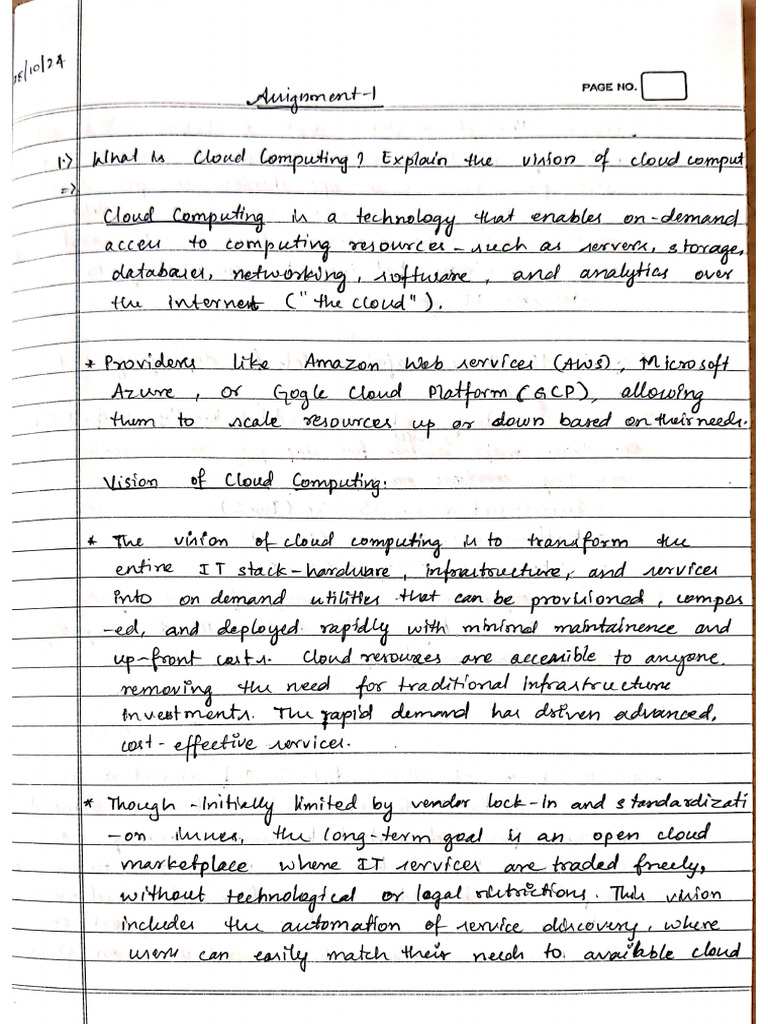 28/10/24
Assignment-1
PAGE NO.
1.) What is Cloud Computing? Explain the vision of cloud comput
=>
Cloud Computing is a technology that enables on-demand
access to computing resources - such as servers, storage,
databases, networking, software, and analytics over
the internet ("the cloud").
* Providers like Amazon Web services (AWS), Microsoft
Azure, or Gogle Cloud Platform (GCP), allowing
them to scale resources up or down based on their needs.
Vision of Cloud Computing.
* The vision of cloud computing is to transform the
entire IT stack-hardware, infrastructure, and services
into on demand utilities that can be provisioned, compos
-ed, and deployed rapidly with minimal maintainence and
up-front costs. Cloud resources are accessible to anyone.
removing the need for traditional infrastructure
investments. The rapid demand has driven advanced,
cost-effective services.
* Though -initially limited by vendor lock-in and standardizati
-on issues, the long-term goal is an open cloud
marketplace where IT services are traded freely,
without technological or legal restrictions. This vision
includes the automation of service discovery, where
users can easily match their needs to available cloud